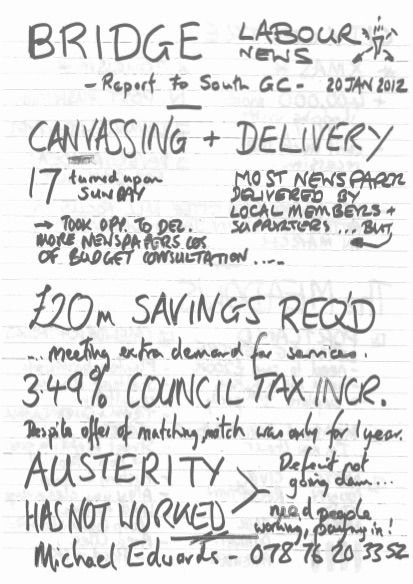 BRIDGE LABOUR NEWS
- Report to South GC - 20 JAN 2012
CANVASSING + DELIVERY
17 turned up on SUNDAY
→ TOOK OPP. TO DEL.
MORE NEWSPAPERS COS
OF BUDGET CONSULTATION .....
MOST NEWSPAPER
DELIVERED BY
LOCAL MEMBERS +
SUPPORTERS ... BUT
£20m SAVINGS REQ'D
... meeting extra demand for services.
3.49% COUNCIL TAX INCR.
Despite offer of matching, which was only for 1 year.
AUSTERITY
HAS NOT WORKED
Deficit not
going down...
need people
working, paying in!
Michael Edwards - 078 76 20 3352